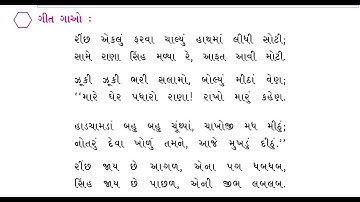 ગીત ગાઓ :
રીંછ એકલું ફરવા ચાલ્યું હાથમાં લીધી સોટી;
સામે રાણા સિંહ મળ્યા રે, આફત આવી મોટી.
ઝૂકી ઝૂકી ભરી સલામો, બોલ્યું મીઠાં વેણ;
“મારે ઘેર પધારો રાણા! રાખો મારું કહેણ.
હાડચામડાં બહુ બહુ ચૂંથ્યાં, ચાખોજી મધ મીઠું;
નોતરું દેવા ખોળું તમને, આજે મુખડું દીઠું.”
રીંછ જાય છે આગળ, એના પગ ધબધબ,
સિંહ જાય છે પાછળ, એની જીભ લબલબ.